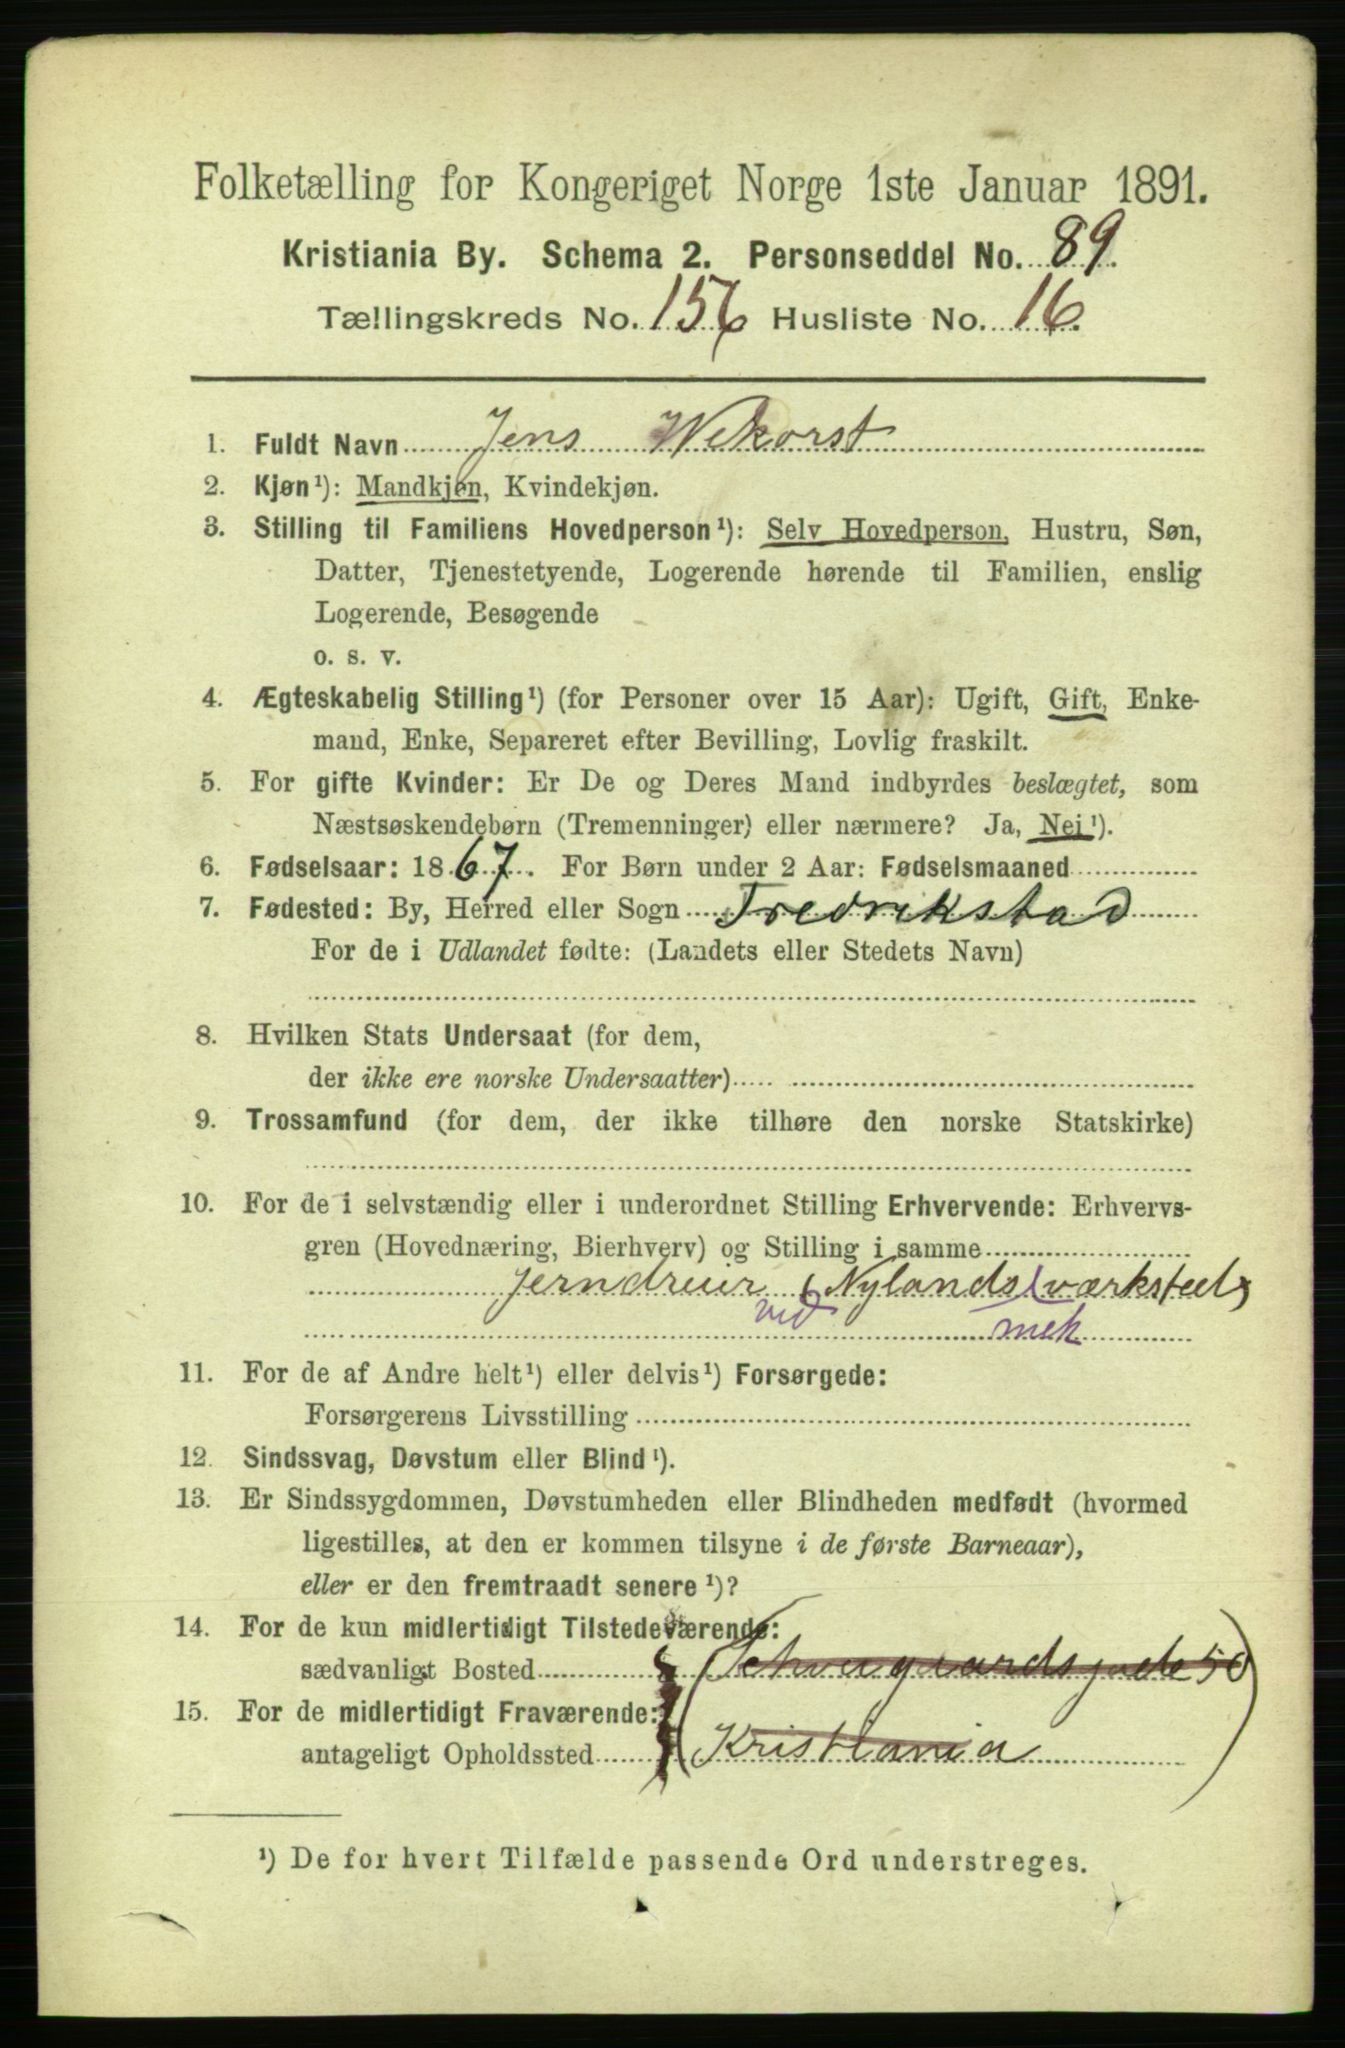 Folketælling for Kongeriget Norge 1ste Januar 1891.
Kristiania By. Schema 2. Personseddel No. 89.
Tællingskreds No. 156 Husliste No. 16.
1. Fuldt Navn Jens Wekorst
2. Kjøn¹): Mandkjøn, Kvindekjøn.
3. Stilling til Familiens Hovedperson¹): Selv Hovedperson, Hustru, Søn,
Datter, Tjenestetyende, Logerende hørende til Familien, enslig
Logerende, Besøgende
o. s. v.
4. Ægteskabelig Stilling¹) (for Personer over 15 Aar): Ugift, Gift, Enke-
mand, Enke, Separeret efter Bevilling, Lovlig fraskilt.
5. For gifte Kvinder: Er De og Deres Mand indbyrdes beslægtet, som
Næstsøskendebørn (Tremenninger) eller nærmere? Ja, Nei¹).
6. Fødselsaar: 1867. For Børn under 2 Aar: Fødselsmaaned
7. Fødested: By, Herred eller Sogn Fredrikstad
For de i Udlandet fødte: (Landets eller Stedets Navn)
8. Hvilken Stats Undersaat (for dem,
der ikke ere norske Undersaatter)
9. Trossamfund (for dem, der ikke tilhøre den norske Statskirke)
10. For de i selvstændig eller i underordnet Stilling Erhvervende: Erhvervs-
gren (Hovednæring, Bierhverv) og Stilling i samme
Jerndreier Nylands værksted
ved mek
11. For de af Andre helt¹) eller delvis¹) Forsørgede:
Forsørgerens Livsstilling
12. Sindssvag, Døvstum eller Blind¹).
13. Er Sindssygdommen, Døvstumheden eller Blindheden medfødt (hvormed
ligestilles, at den er kommen tilsyne i de første Barneaar),
eller er den fremtraadt senere¹)?
14. For de kun midlertidigt Tilstedeværende:
sædvanligt Bosted (Schweigaardsgade 50
15. For de midlertidigt Fraværende:
antageligt Opholdssted (Kristiania)
¹) De for hvert Tilfælde passende Ord understreges.